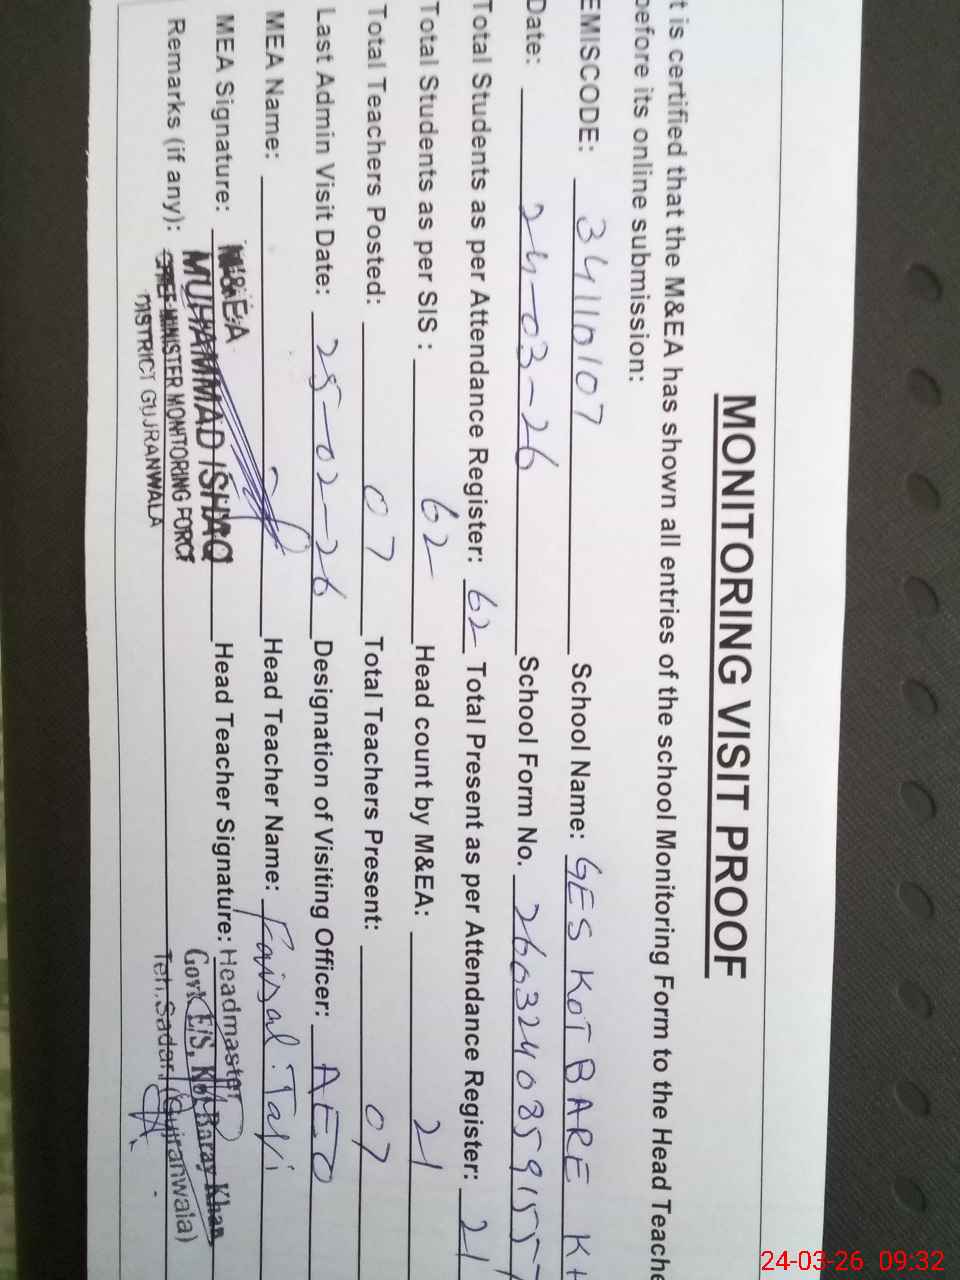 MONITORING VISIT PROOF
t is certified that the M&EA has shown all entries of the school Monitoring Form to the Head Teache
before its online submission:
EMISCODE: 34110107 School Name: GES KOT BARE KH
Date: 24-03-26 School Form No. 2603240859157
Total Students as per Attendance Register: 62 Total Present as per Attendance Register: 21
Total Students as per SIS : 62 Head count by M&EA: 21
Total Teachers Posted: 07 Total Teachers Present: 07
Last Admin Visit Date: 25-02-26 Designation of Visiting Officer: AEO
MEA Name: Head Teacher Name: Faisal
MEA Signature: M&EA Head Teacher Signature: Headmaster
MUHAMMAD ISHAQ Govt. E/S, Kot Baray Khan,
Remarks (if any): CHIEF MINISTER MONITORING FORCE Teh. Sadar (Gujranwala)
DISTRICT GUJRANWALA
24-03-26 09:32